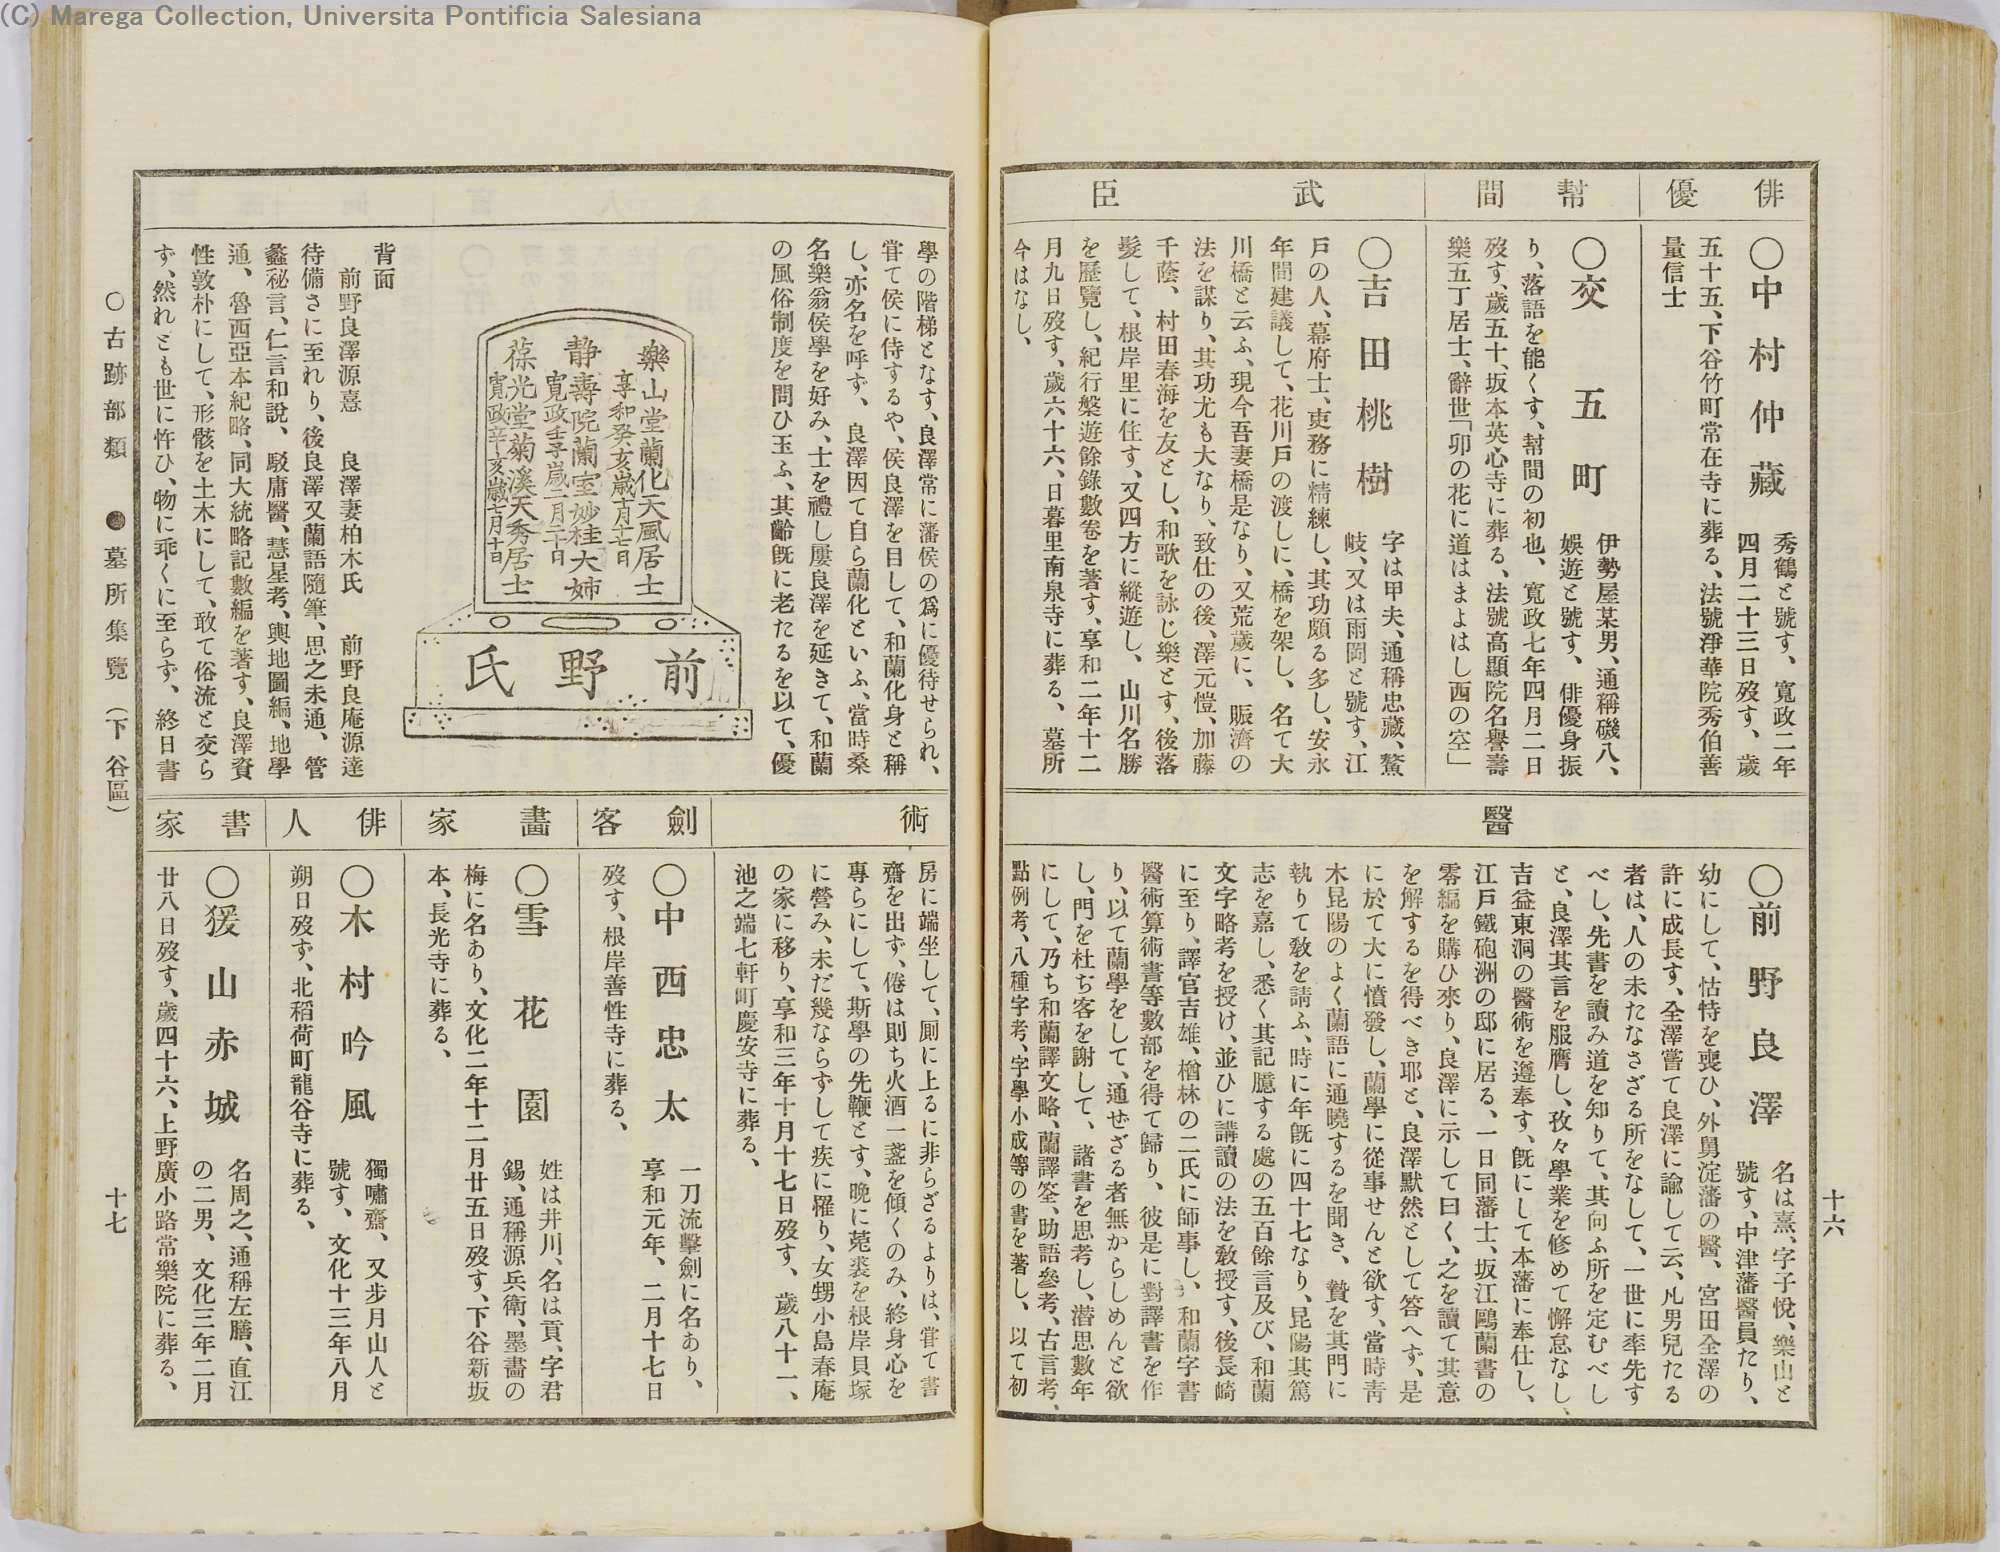 (C) Marega Collection, Universita Pontificia Salesiana
俳優
〇中村仲藏
秀鶴と號す、寛政二年
四月二十三日歿す、歳
五十五、下谷竹町常在寺に葬る、法號淨華院秀伯善
量信士
幇間
〇交五町
伊勢屋某男、通稱磯八、
娯遊と號す、俳優身振
り、落語を能くす、幇間の初也、寛政七年四月二日
歿す、歳五十、坂本英心寺に葬る、法號高顯院名譽壽
樂五丁居士、辭世「卯の花に道はまよはし西の空」
武臣
〇吉田桃樹
字は甲夫、通稱忠藏、鰲
岐、又は雨岡と號す、江
戸の人、幕府士、吏務に精練し、其功頗る多し、安永
年間建議して、花川戸の渡しに、橋を架し、名て大
川橋と云ふ、現今吾妻橋是なり、又荒歲に、賑濟の
法を謀り、其功尤も大なり、致仕の後、澤元愷、加藤
千蔭、村田春海を友とし、和歌を詠じ樂とす、後落
髮して、根岸里に住す、又四方に縱遊し、山川名勝
を歷覽し、紀行槃遊餘錄數卷を著す、享和二年十二
月九日歿す、歳六十六、日暮里南泉寺に葬る、墓所
今はなし、
醫
〇前野良澤
名は熹、字子悅、樂山と
號す、中津藩醫員たり、
幼にして、怙恃を喪ひ、外舅淀藩の醫、宮田全澤の
許に成長す、全澤嘗て良澤に諭して云、凡男兒たる
者は、人の未たなさざる所をなして、一世に率先す
べし、先書を讀み道を知りて、其向ふ所を定むべし
と、良澤其言を服膺し、孜々學業を修めて懈怠なし、
吉益東洞の醫術を遵奉す、旣にして本藩に奉仕し、
江戸鐵砲洲の邸に居る、一日同藩士、坂江鷗蘭書の
零編を購ひ來り、良澤に示して曰く、之を讀て其意
を解するを得べき耶と、良澤默然として答へず、是
に於て大に憤發し、蘭學に從事せんと欲す、當時靑
木昆陽のよく蘭語に通曉するを聞き、贄を其門に
執りて敎を請ふ、時に年旣に四十七なり、昆陽其篤
志を嘉し、悉く其記臆する處の五百餘言及び、和蘭
文字略考を授け、並ひに講讀の法を敎授す、後長崎
に至り、譯官吉雄、楢林の二氏に師事し、和蘭字書
醫術算術書等數部を得て歸り、彼是に對譯書を作
り、以て蘭學をして、通ぜざる者無からしめんと欲
し、門を杜ぢ客を謝して、諸書を思考し、潜思數年
にして、乃ち和蘭譯文略、蘭譯筌、助語參考、古言考、
點例考、八種字考、字學小成等の書を著し、以て初
十六
學の階梯となす、良澤常に藩侯の爲に優待せられ、
甞て侯に侍するや、侯良澤を目して、和蘭化身と稱
し、亦名を呼ず、良澤因て自ら蘭化といふ、當時桑
名樂翁侯學を好み、士を禮し屢良澤を延きて、和蘭
の風俗制度を問ひ玉ふ、其齡旣に老たるを以て、優
樂山堂蘭化天風居士
享和癸亥歲十月十七日
静壽院蘭室妙桂大姉
寛政壬子歲二月二十日
葆光堂菊溪天秀居士
寛政辛亥歲七月十日
前野氏
背面
前野良澤源憙 良澤妻柏木氏 前野良庵源達
待備さに至れり、後良澤又蘭語隨筆、思之未通、管
蠡秘言、仁言和說、駁庸醫、慧星考、輿地圖編、地學
通、魯西亞本紀略、同大統略記數編を著す、良澤資
性敦朴にして、形骸を土木にして、敢て俗流と交ら
ず、然れとも世に忤ひ、物に乖くに至らず、終日書
術
房に端坐して、厠に上るに非らざるよりは、甞て書
齋を出ず、倦は則ち火酒一盞を傾くのみ、終身心を
專らにして、斯學の先鞭とす、晩に菟裘を根岸貝塚
に營み、未だ幾ならずして疾に罹り、女甥小島春庵
の家に移り、享和三年十月十七日歿す、歳八十一、
池之端七軒町慶安寺に葬る、
劍客
〇中西忠太
一刀流擊劍に名あり、
享和元年、二月十七日
歿す、根岸善性寺に葬る、
畵家
〇雪花園
姓は井川、名は貢、字君
錫、通稱源兵衛、墨畵の
梅に名あり、文化二年十二月廿五日歿す、下谷新坂
本、長光寺に葬る、
俳人
〇木村吟風
獨嘯齋、又步月山人と
號す、文化十三年八月
朔日歿ず、北稻荷町龍谷寺に葬る、
書家
〇猨山赤城
名周之、通稱左膳、直江
の二男、文化三年二月
廿八日歿す、歳四十六、上野廣小路常樂院に葬る、
〇古跡部類 ●墓所集覽（下谷區）
十七